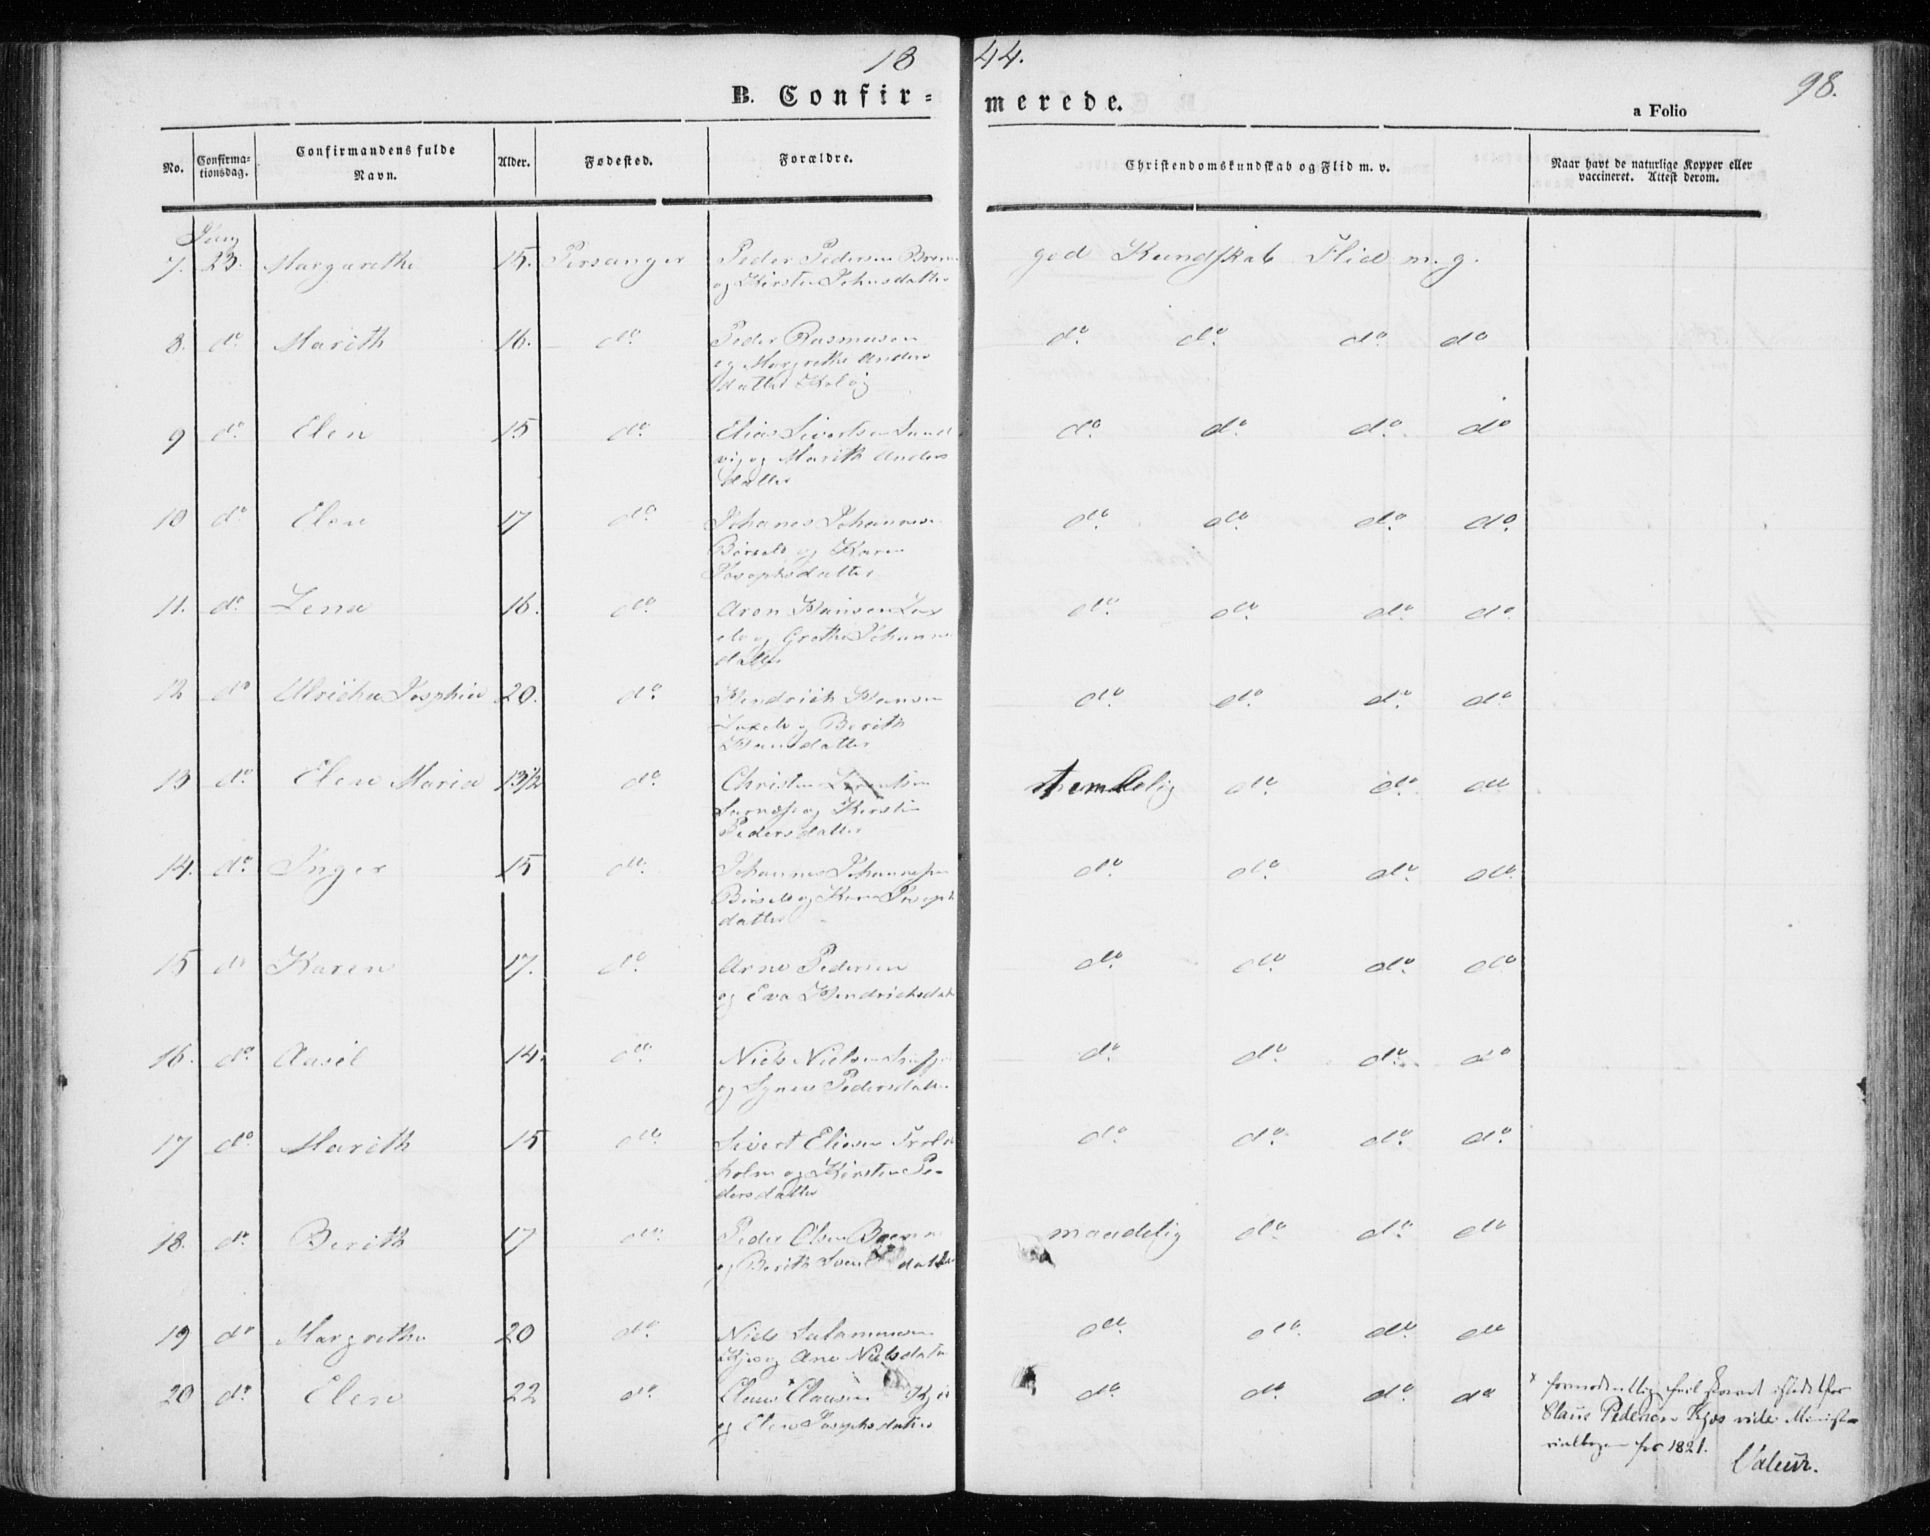 18 44.
98.
B. Confir= merede.
a Folio
No. Confirma-tionsdag. Confirmandens fulde Navn. Alder. Fødested. Forældre. Christendomskundskab og Flid m. v. Naar havt de naturlige Kopper eller vaccineret. Attest derom.
7. 23. Margarethe 15. Porsanger Peder Pedersen god Kundskab Flid m. g.
og Kirsten Johnsdatter
8. do Marith 16. do Peder Rasmusen do do do do
og Margrethe Anders
datter
9 do Elen 15 do Elias Sivertsen Sand do do do do
vig og Marith Anders
datter
10 do Elen 17 do Johanes Johannesen do do do do
Børselv og Karen
Josephsdatter
11. do Lena 16. do Aron Hansen Lax do do do do
elv og Grethe Johannes
datter
12 do Ulricha Josephia 20. do Hendrich Hansen do do do do
Laxelv og Berith
Hansdatter
13 do Elen Maria 13 1/2 do Christen temmelig do do do
og Kirstin
Pedersdatter
14. do Inger 15 do Johannes Johannesen do do do do
Børselv og Karen Joseph
datter
15 do Karen 17. do Arne Pedersen do do do do
og Eva Hendrichsdat
16. do Aasel 14. do Niels Nielsen do do do do
og Pedersdatter
17 do Marith 15 do Sivert Eliesen Trold do do do do
holm og Kirsten Pe-
dersdatter
18. do Berith 17 do Peder Olsen maadelig do do do
og Berith datter
19 do Margrethe 20 do Niels Salamonsen do do do do
Kjes og Ane Nielsdatter
20 do Elen 22 do Claus Clausen Kjes do do do do
og Elen Josephsdatter
x formodentlig feil skrevet istedetfor
Claus Pedersen Kjøs vide Ministe-
rialbogen for 1821.